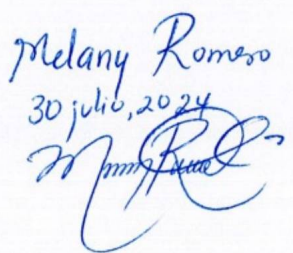 Melany Romero
30 julio, 2024